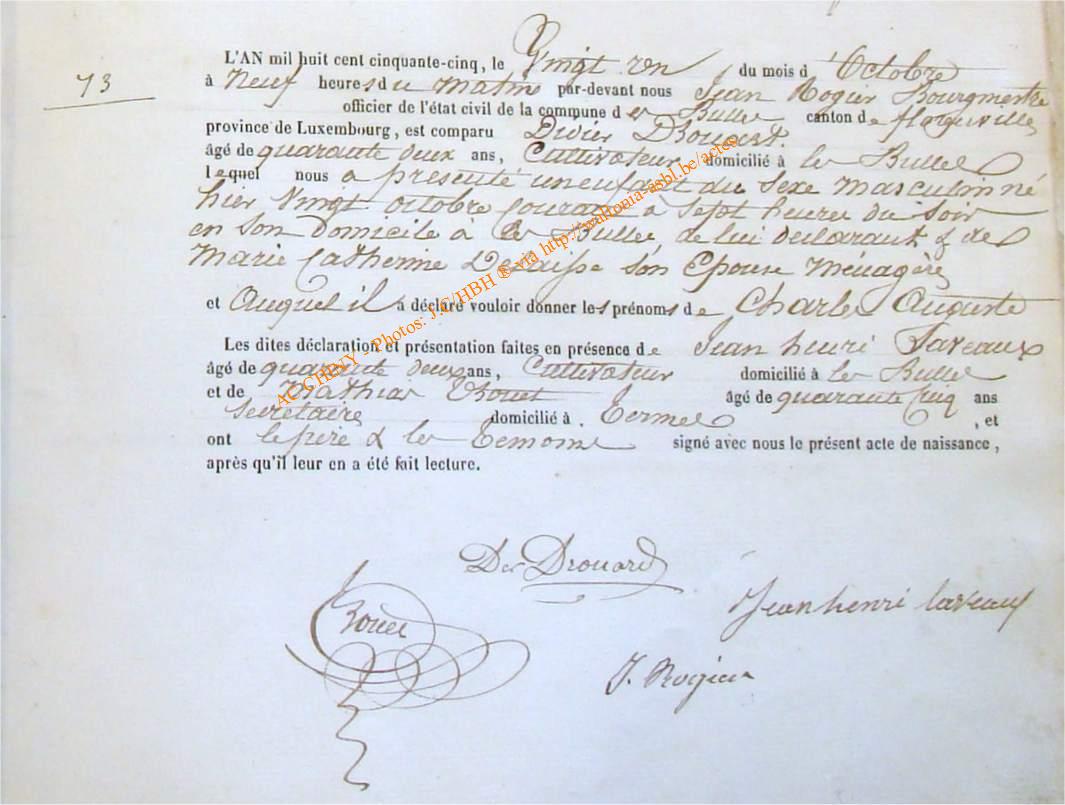 73
L'AN mil huit cent cinquante-cinq, le Vingt un du mois d'Octobre
à Neuf heures du matin par-devant nous Jean Rogier Bourgmestre
officier de l'état civil de la commune des Bulles canton de florenville
province de Luxembourg, est comparu Didier Drouart.
âgé de quarante deux ans, Cultivateur domicilié à les Bulles
lequel nous a présenté un enfant du Sexe masculin né
hier Vingt octobre Courant à Sept heures du Soir
en son Domicile à les Bulles, de lui declarant & de
Marie Catherine son Epouse Ménagère
et Auquel il a déclaré vouloir donner les prénoms de Charles Auguste
Les dites déclaration et présentation faites en présence de Jean henri Laveaux
âgé de quarante deux ans, Cultivateur domicilié à les Bulles
et de Mathias Rouet âgé de quarante Cinq ans
Secrétaire domicilié à Termes , et
ont le père & les temoins signé avec nous le présent acte de naissance,
après qu'il leur en a été fait lecture.
Der Drouard
Rouet
Jean henri laveaux
J. Rogier
AC CHINY - Photos: J.C/HBH ® via http://wallonia-asbl.be/actes